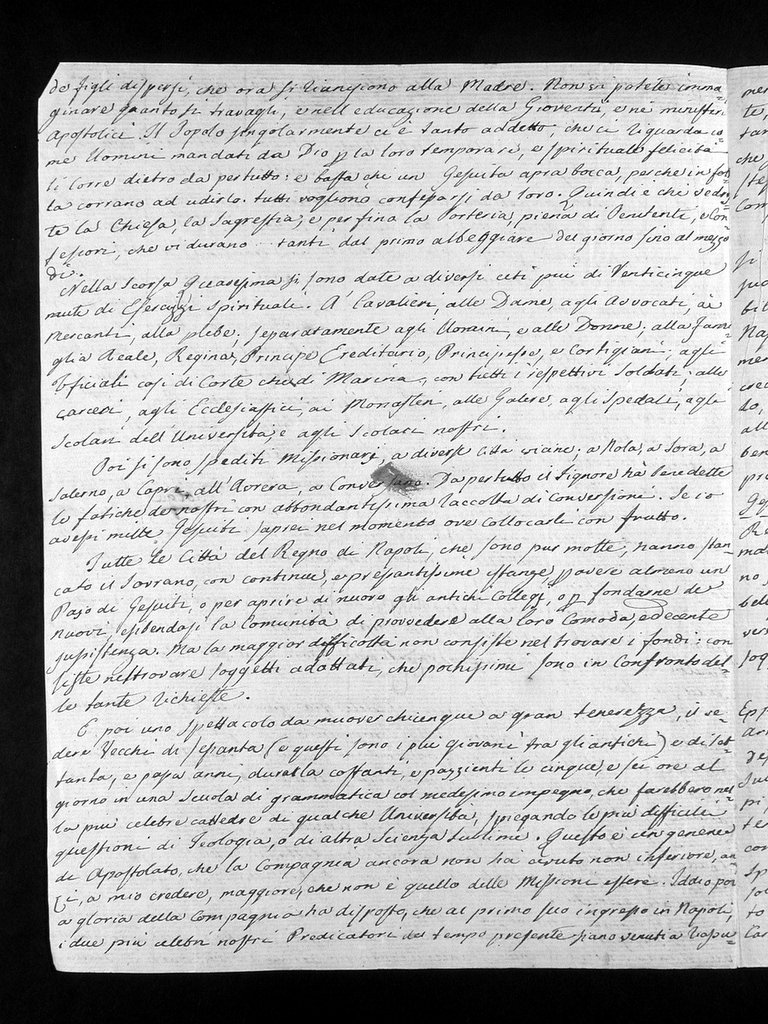 de figli dispersi, che ora si riuniscono alla Madre. Non vi potete imma=
ginare quanto si travagli, e nell'educazione della Gioventù, e ne' ministeri
Apostolici. Il Popolo singolarmente ci è tanto addetto, che ci riguarda co=
me Uomini mandati da Dio p la loro temporale, e spirituale felicità
li corre dietro da per tutto: e basta che un Gesuita apra bocca, perche in fol=
la corrano ad udirlo. tutti vogliono confessarsi da loro. Quindi è che vedre=
te la Chiesa, la Sagrestia, e per fina la Porteria, piena di Penitenti, e Con=
fessori, che vi durano tanti dal primo albeggiare del giorno sino al mezzo
dì.
Nella scorsa Quaresima si sono date a diversi ceti più di Venticinque
mute di Esercizzi Spirituali. A' Cavalieri, alle Dame, agli Avvocati, ai
Mercanti, alla plebe, separatamente agli Uomini, e alle Donne; alla Fami=
glia Reale, Regina, Principe Ereditario, Principesse, e Cortigiani; agli
Officiali così di Corte che di Marina, con tutti i rispettivi Soldati; alle
Carceri, agli Ecclesiastici, ai Monasteri, alle Galere, agli Spedali, agli
Scolari dell'Università, e agli Scolari nostri.
Poi si sono spediti Missionarj, a diverse Città vicine; a Nola, a Sora, a
Salerno, a Capri, all'Aversa, a Conversano. Da per tutto il Signore hà benedette
le fatiche de' nostri con abbondantissima raccolta di conversioni. Se io
avessi mille Gesuiti saprei nel momento ove collocarli con frutto.
Tutte le Città del Regno di Napoli, che sono pur molte, hanno stan=
cato il Sovrano, con continue, e pressantissime istanze p avere almeno un
Pajo di Gesuiti, o per aprire di nuovo gli antichi Collegj, o p fondarne de'
nuovi, esibendosi la Comunità di provvedere alla loro Comoda, e decente
sussistenza. Ma la maggior difficoltà non consiste nel trovare i fondi: con
siste nel trovare soggetti adattati, che pochissimi sono in confronto del=
le tante richieste.
E poi uno spettacolo da muover chicenque a gran tenerezza, il ve=
dere Vecchi di sessanta (e questi sono i più giovani tra gli antichi) e di set=
tanta, e passa anni, durarla costanti, e pazzienti le cinque, e sei ore al
giorno in una scuola di grammatica col medesimo impegno, che farebbero nel
la più celebre cattedra di qualche Università, spiegando le più difficili
questioni di Teologia, o di altra Scienza sublime. Questo è un genere
di Apostolato, che la Compagnia ancora non ha avuto non inferiore, an
zi, a mio credere, maggiore, che non è quello delle Missioni estere. Iddio poi
a gloria della Compagnia ha disposto, che al primo suo ingresso in Napoli,
i due più celebri nostri Predicatori del tempo presente siano venuti a riapu=